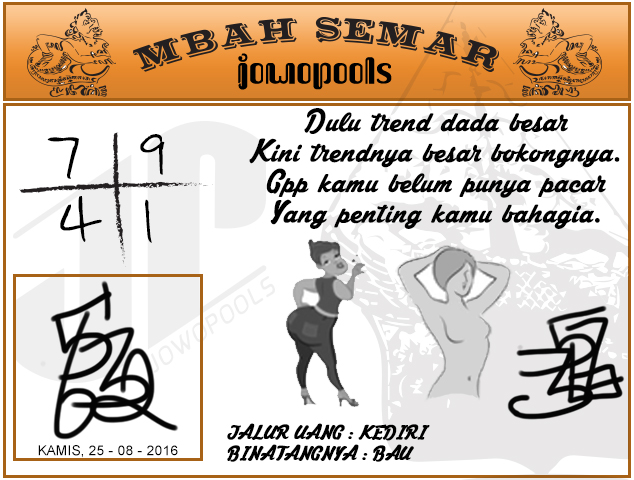 MBAH SEMAR
jowopools
7 9
4 1
Dulu trend dada besar
Kini trendnya besar bokongnya.
Gpp kamu belum punya pacar
Yang penting kamu bahagia.
JOWOPOOLS
KAMIS, 25 - 08 - 2016
JALUR UANG : KEDIRI
BINATANGNYA : BAU